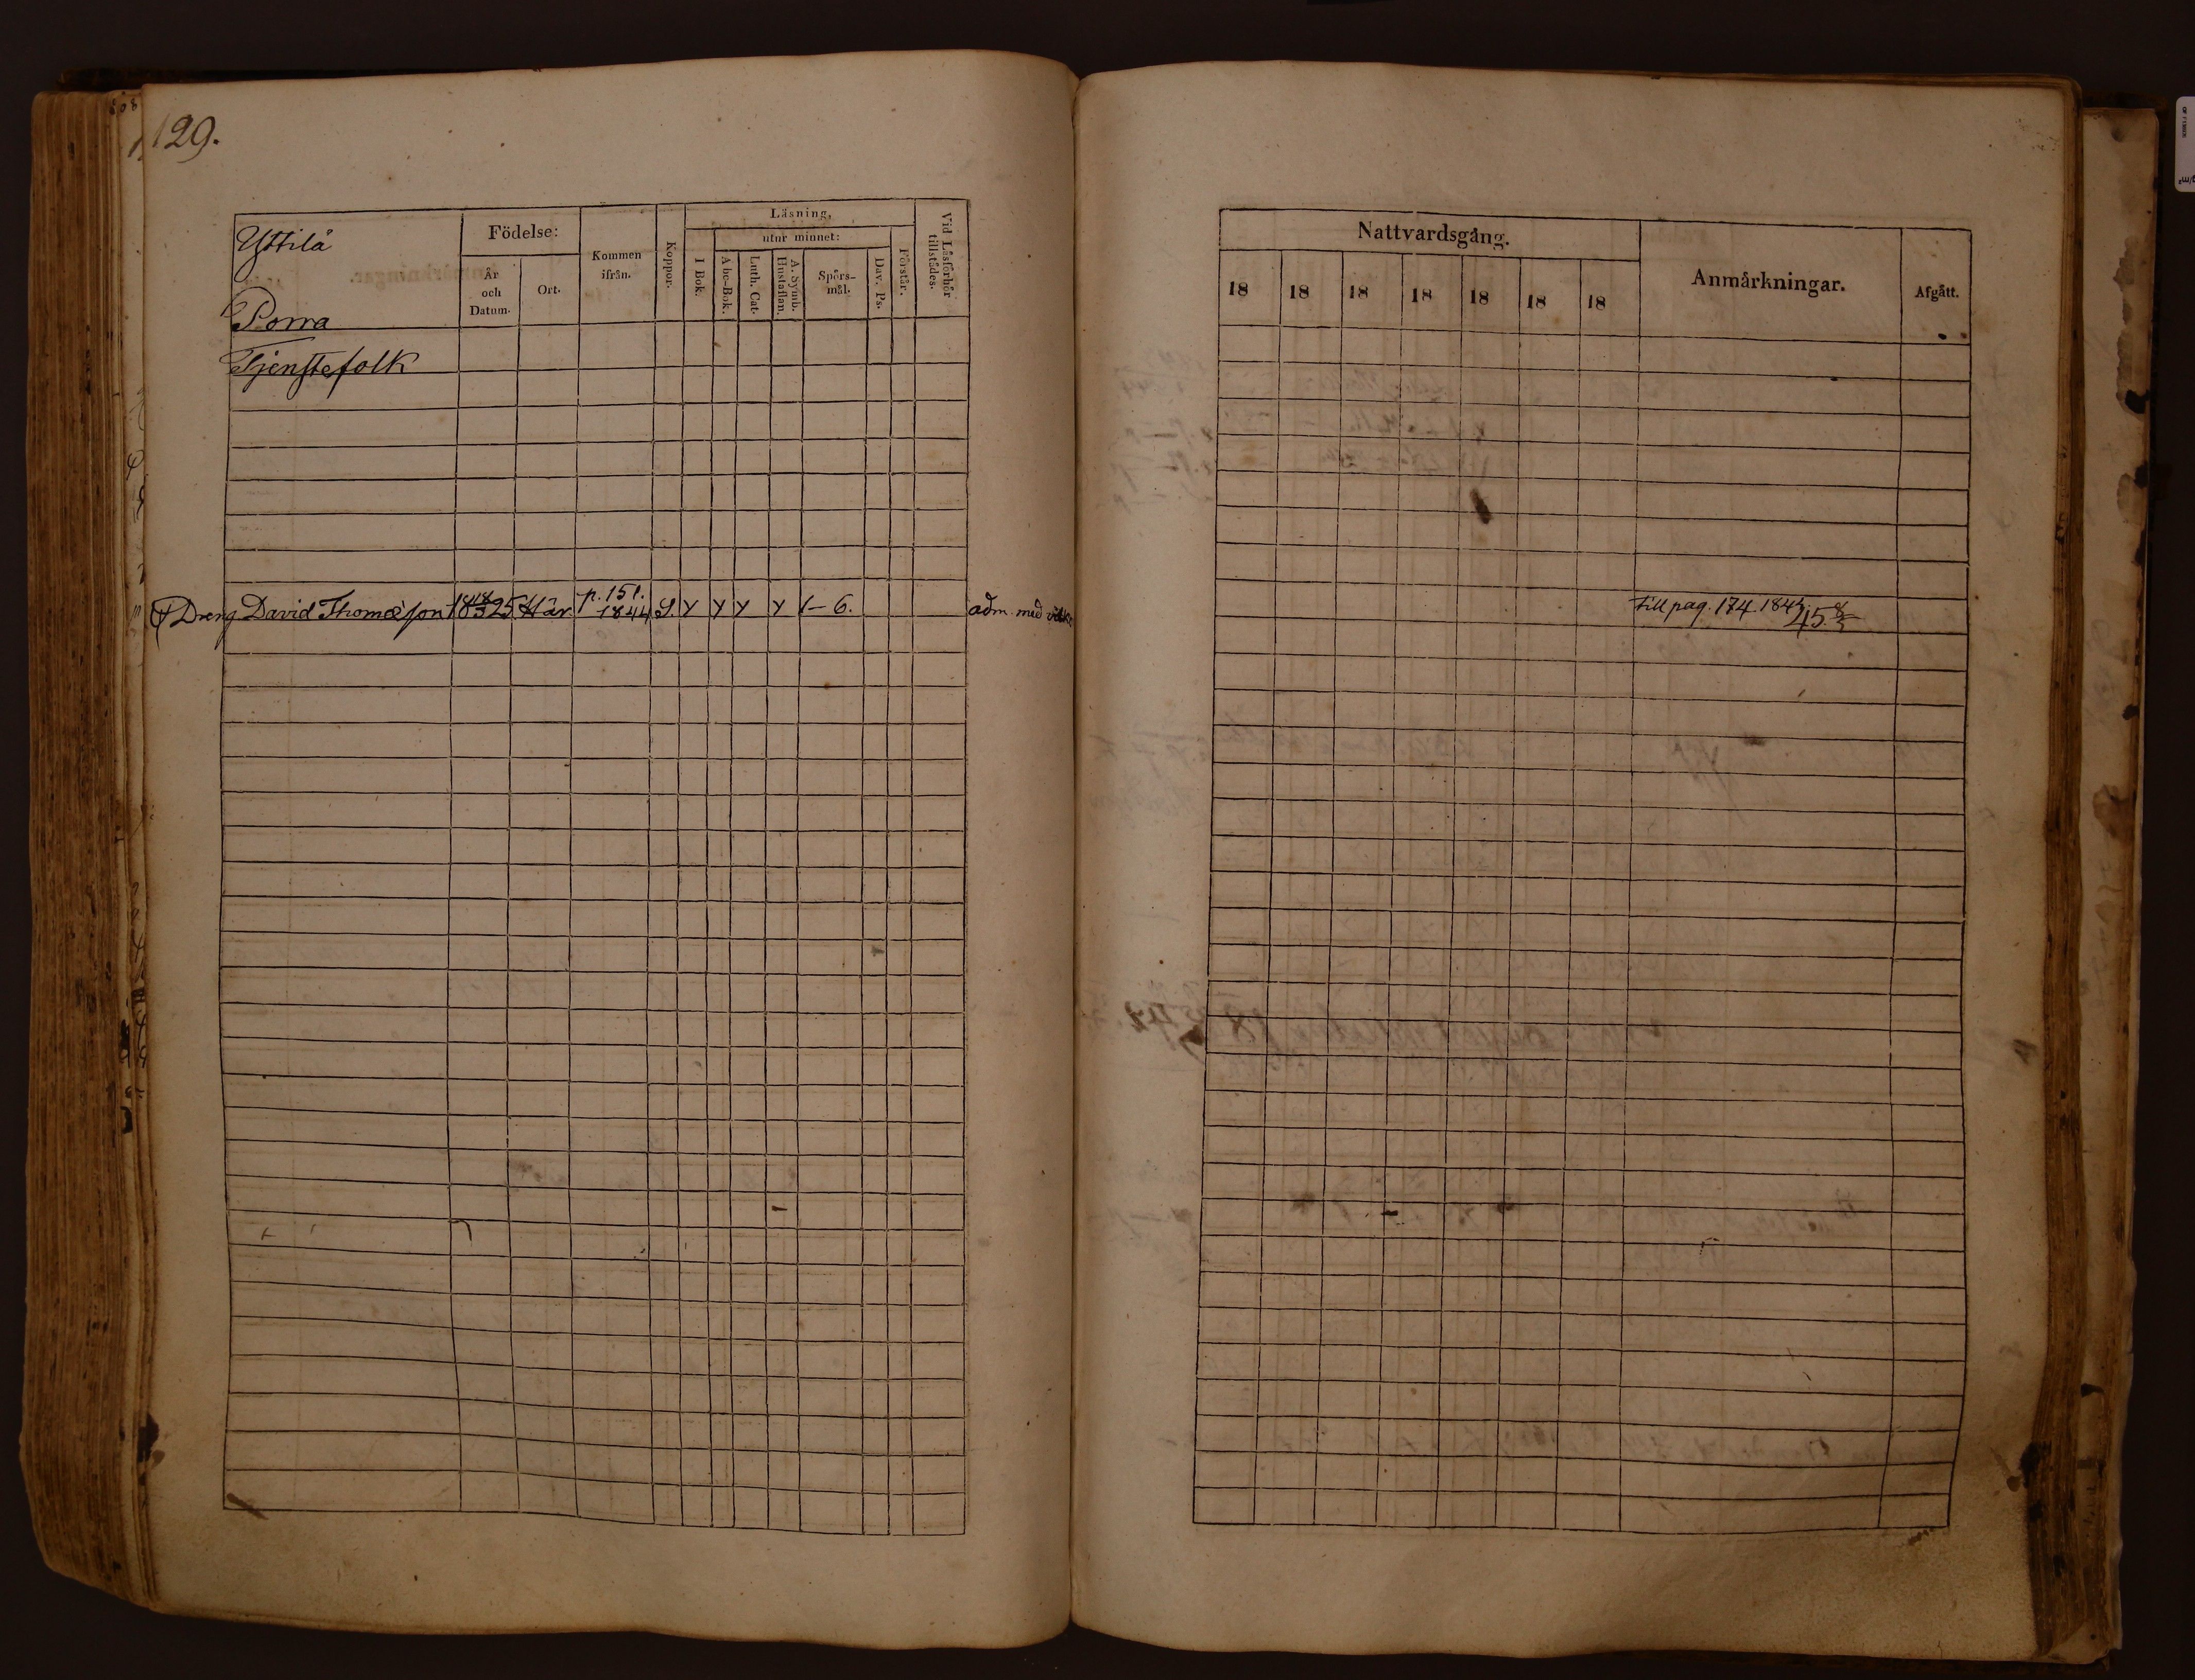 129.
Yttilä
Porra
Tjenstefolk
Födelse:
År
och
Datum.
Ort.
Kommen
ifrån.
Koppor.
Läsning,
utur minnet:
I Bok.
Abc-Bok.
Luth. Cat.
A. Symb.
Hustaflan.
Spörs-
mål.
Dav. Ps.
Förstår.
Vid Läsförhör
tillstädes.
Dreng David Thomæson 18 25 Här p. 151. 1844 S. Y Y Y Y 1-6. adm. med
Nattvardsgång.
18 18 18 18 18 18 18
Anmärkningar.
Afgått.
till pag. 174. 45.